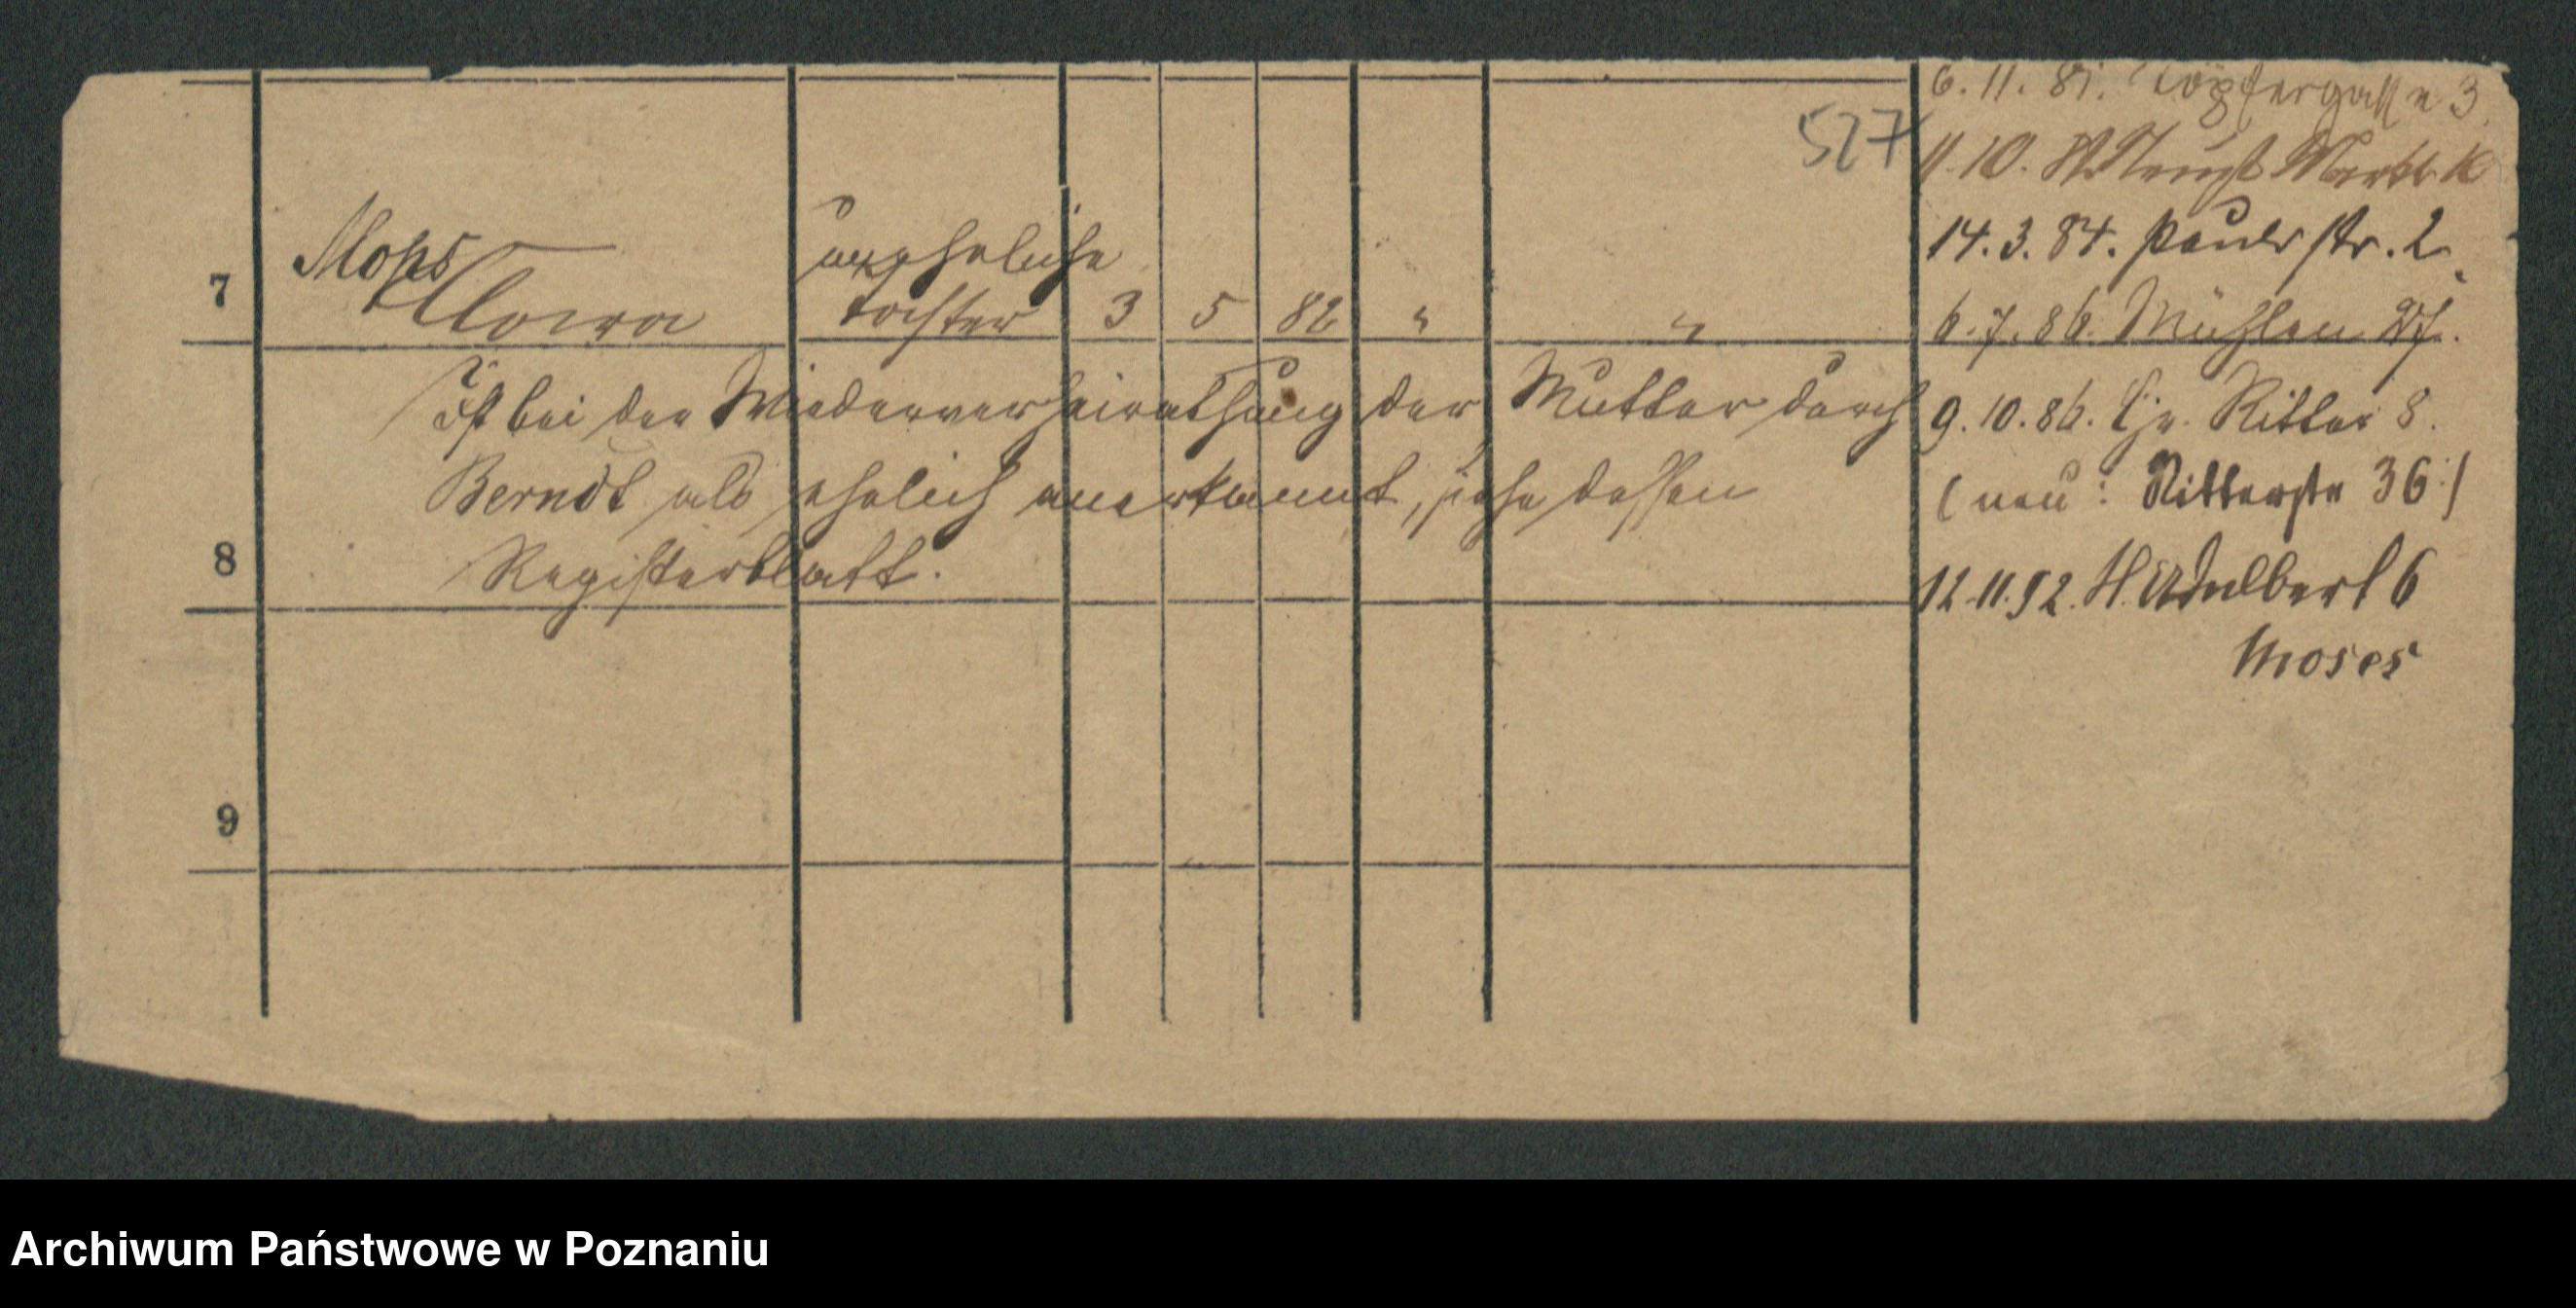 6. 11. 81. Töpfergasse 3
527
11. 10. Neust Markt 10
14. 3. 84. Paulistr. 2
Mops
uneheliche
7 Clara tochter 3 5 82 " "
6. 7. 86. Mühlen 27.
Ist bei der Wiederverheirathung der Mutter durch
9. 10. 86. Gr. Ritter 8.
Berndt als ehelich anerkannt, siehe dessen
(neu: Ritterstr 36)
8 Registerblatt.
12.11.92. H. Adalbert 6
Moses
9
Archiwum Państwowe w Poznaniu